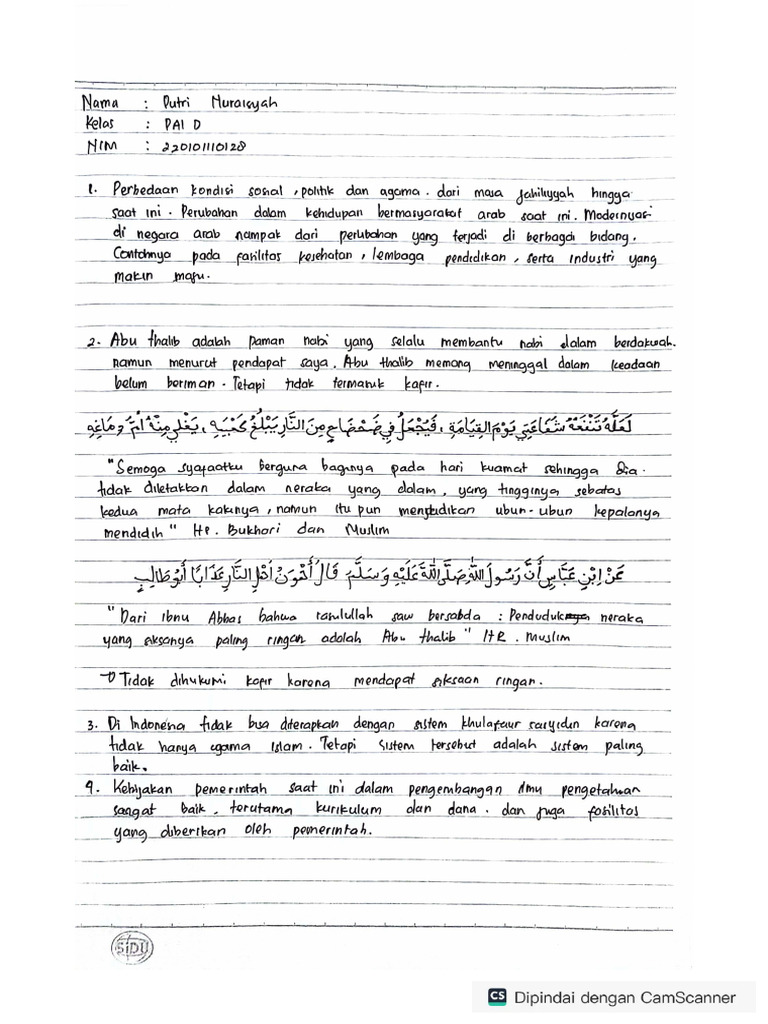 Nama : Putri Nuraisyah
Kelas : PAI D
NIM : 220101110128
1. Perbedaan kondisi sosial, politik dan agama. dari masa jahiliyyah hingga
saat ini. Perubahan dalam kehidupan bermasyarakat arab saat ini. Modernyasi
di negara arab nampak dari perubahan yang terjadi di berbagai bidang.
Contohnya pada fasilitas kesehatan, lembaga pendidikan, serta industri yang
makin maju.
2. Abu thalib adalah paman nabi yang selalu membantu nabi dalam berdakwah.
namun menurut pendapat saya. Abu thalib memang meninggal dalam keadaan
belum beriman. Tetapi tidak termasuk kafir.
لَعَلَّهُ تَنْفَعُهُ شَفَاعَتِي يَوْمَ القِيَامَةِ، فَيُجْعَلُ فِي ضَحْضَاحٍ مِنَ النَّارِ يَبْلُغُ كَعْبَيْهِ، يَغْلِي مِنْهُ أُمُّ دِمَاغِهِ
"Semoga syafaatku berguna baginya pada hari kiamat sehingga dia.
tidak diletakkan dalam neraka yang dalam, yang tingginya sebatas
kedua mata kakinya, namun itu pun menjadikan ubun-ubun kepalanya
mendidih" Hr. Bukhori dan Muslim
عَنْ اِبْنِ عَبَّاسٍ أَنَّ رَسُولَ اللَّهِ صَلَّى اللَّهُ عَلَيْهِ وَسَلَّمَ قَالَ أَهْوَنُ أَهْلِ النَّارِ عَذَابًا أَبُو طَالِبٍ
"Dari ibnu Abbas bahwa rasulullah saw bersabda : Penduduk neraka
yang siksanya paling ringan adalah Abu thalib" HR. Muslim
→ Tidak dihukumi kafir karena mendapat siksaan ringan.
3. Di Indonesia tidak bisa diterapkan dengan sistem khulafaur rasyidin karena
tidak hanya agama Islam. Tetapi sistem tersebut adalah sistem paling
baik.
4. Kebijakan pemerintah saat ini dalam pengembangan ilmu pengetahuan
sangat baik. terutama kurikulum dan dana. dan juga fasilitas
yang diberikan oleh pemerintah.
SIDU
CS Dipindai dengan CamScanner